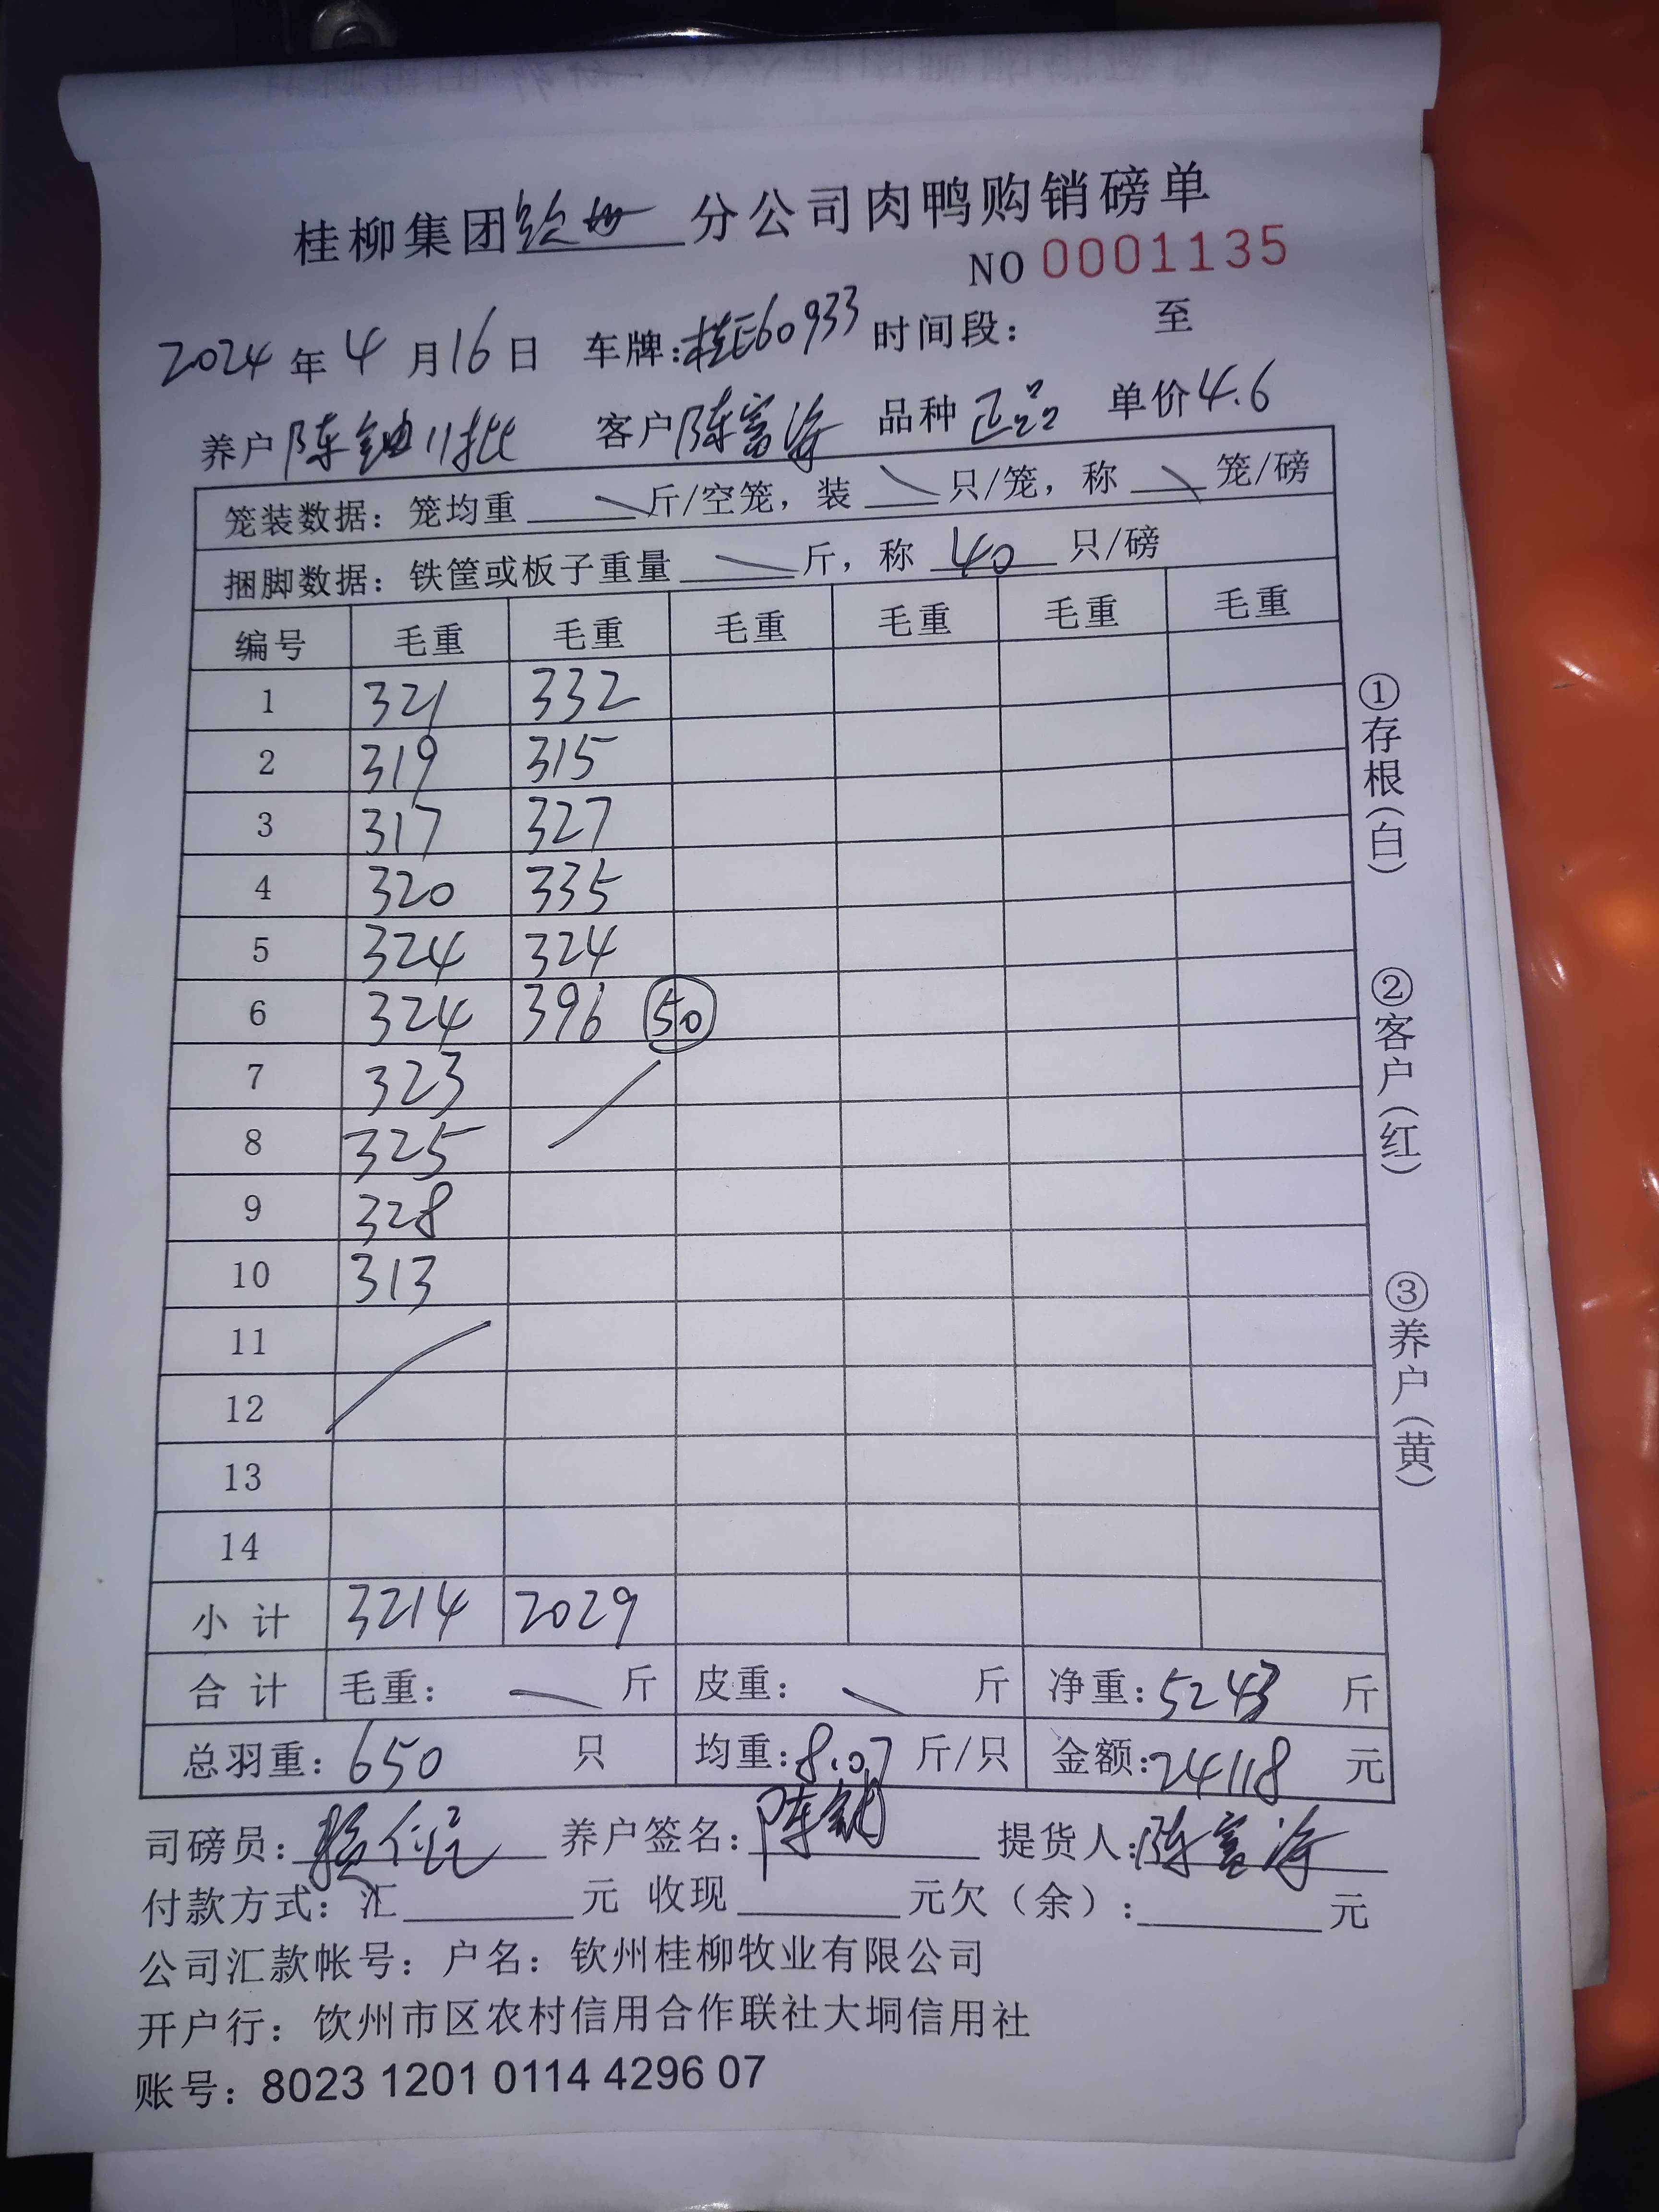 桂柳集团钦州分公司肉鸭购销磅单
NO 0001135
2024年4月16日 车牌:桂E60933 时间段: 至
养户陈 11批 客户陈富 品种正品 单价4.6
笼装数据：笼均重 斤/空笼，装 只/笼，称 笼/磅
捆脚数据：铁筐或板子重量 斤，称 40 只/磅
编号 毛重 毛重 毛重 毛重 毛重 毛重
1 321 332
2 319 315
3 317 327
4 320 335
5 324 324
6 324 396 50
7 323
8 325
9 328
10 313
11
12
13
14
小计 3214 2029
合计 毛重： 斤 皮重： 斤 净重：5243 斤
总羽重：650 只 均重:8.07 斤/只 金额:24118 元
司磅员: 养户签名:陈 提货人:陈富
付款方式：汇 元 收现 元欠（余）: 元
公司汇款帐号：户名：钦州桂柳牧业有限公司
开户行：饮州市区农村信用合作联社大垌信用社
账号：8023 1201 0114 4296 07
①存根(白) ②客户(红) ③养户(黄)